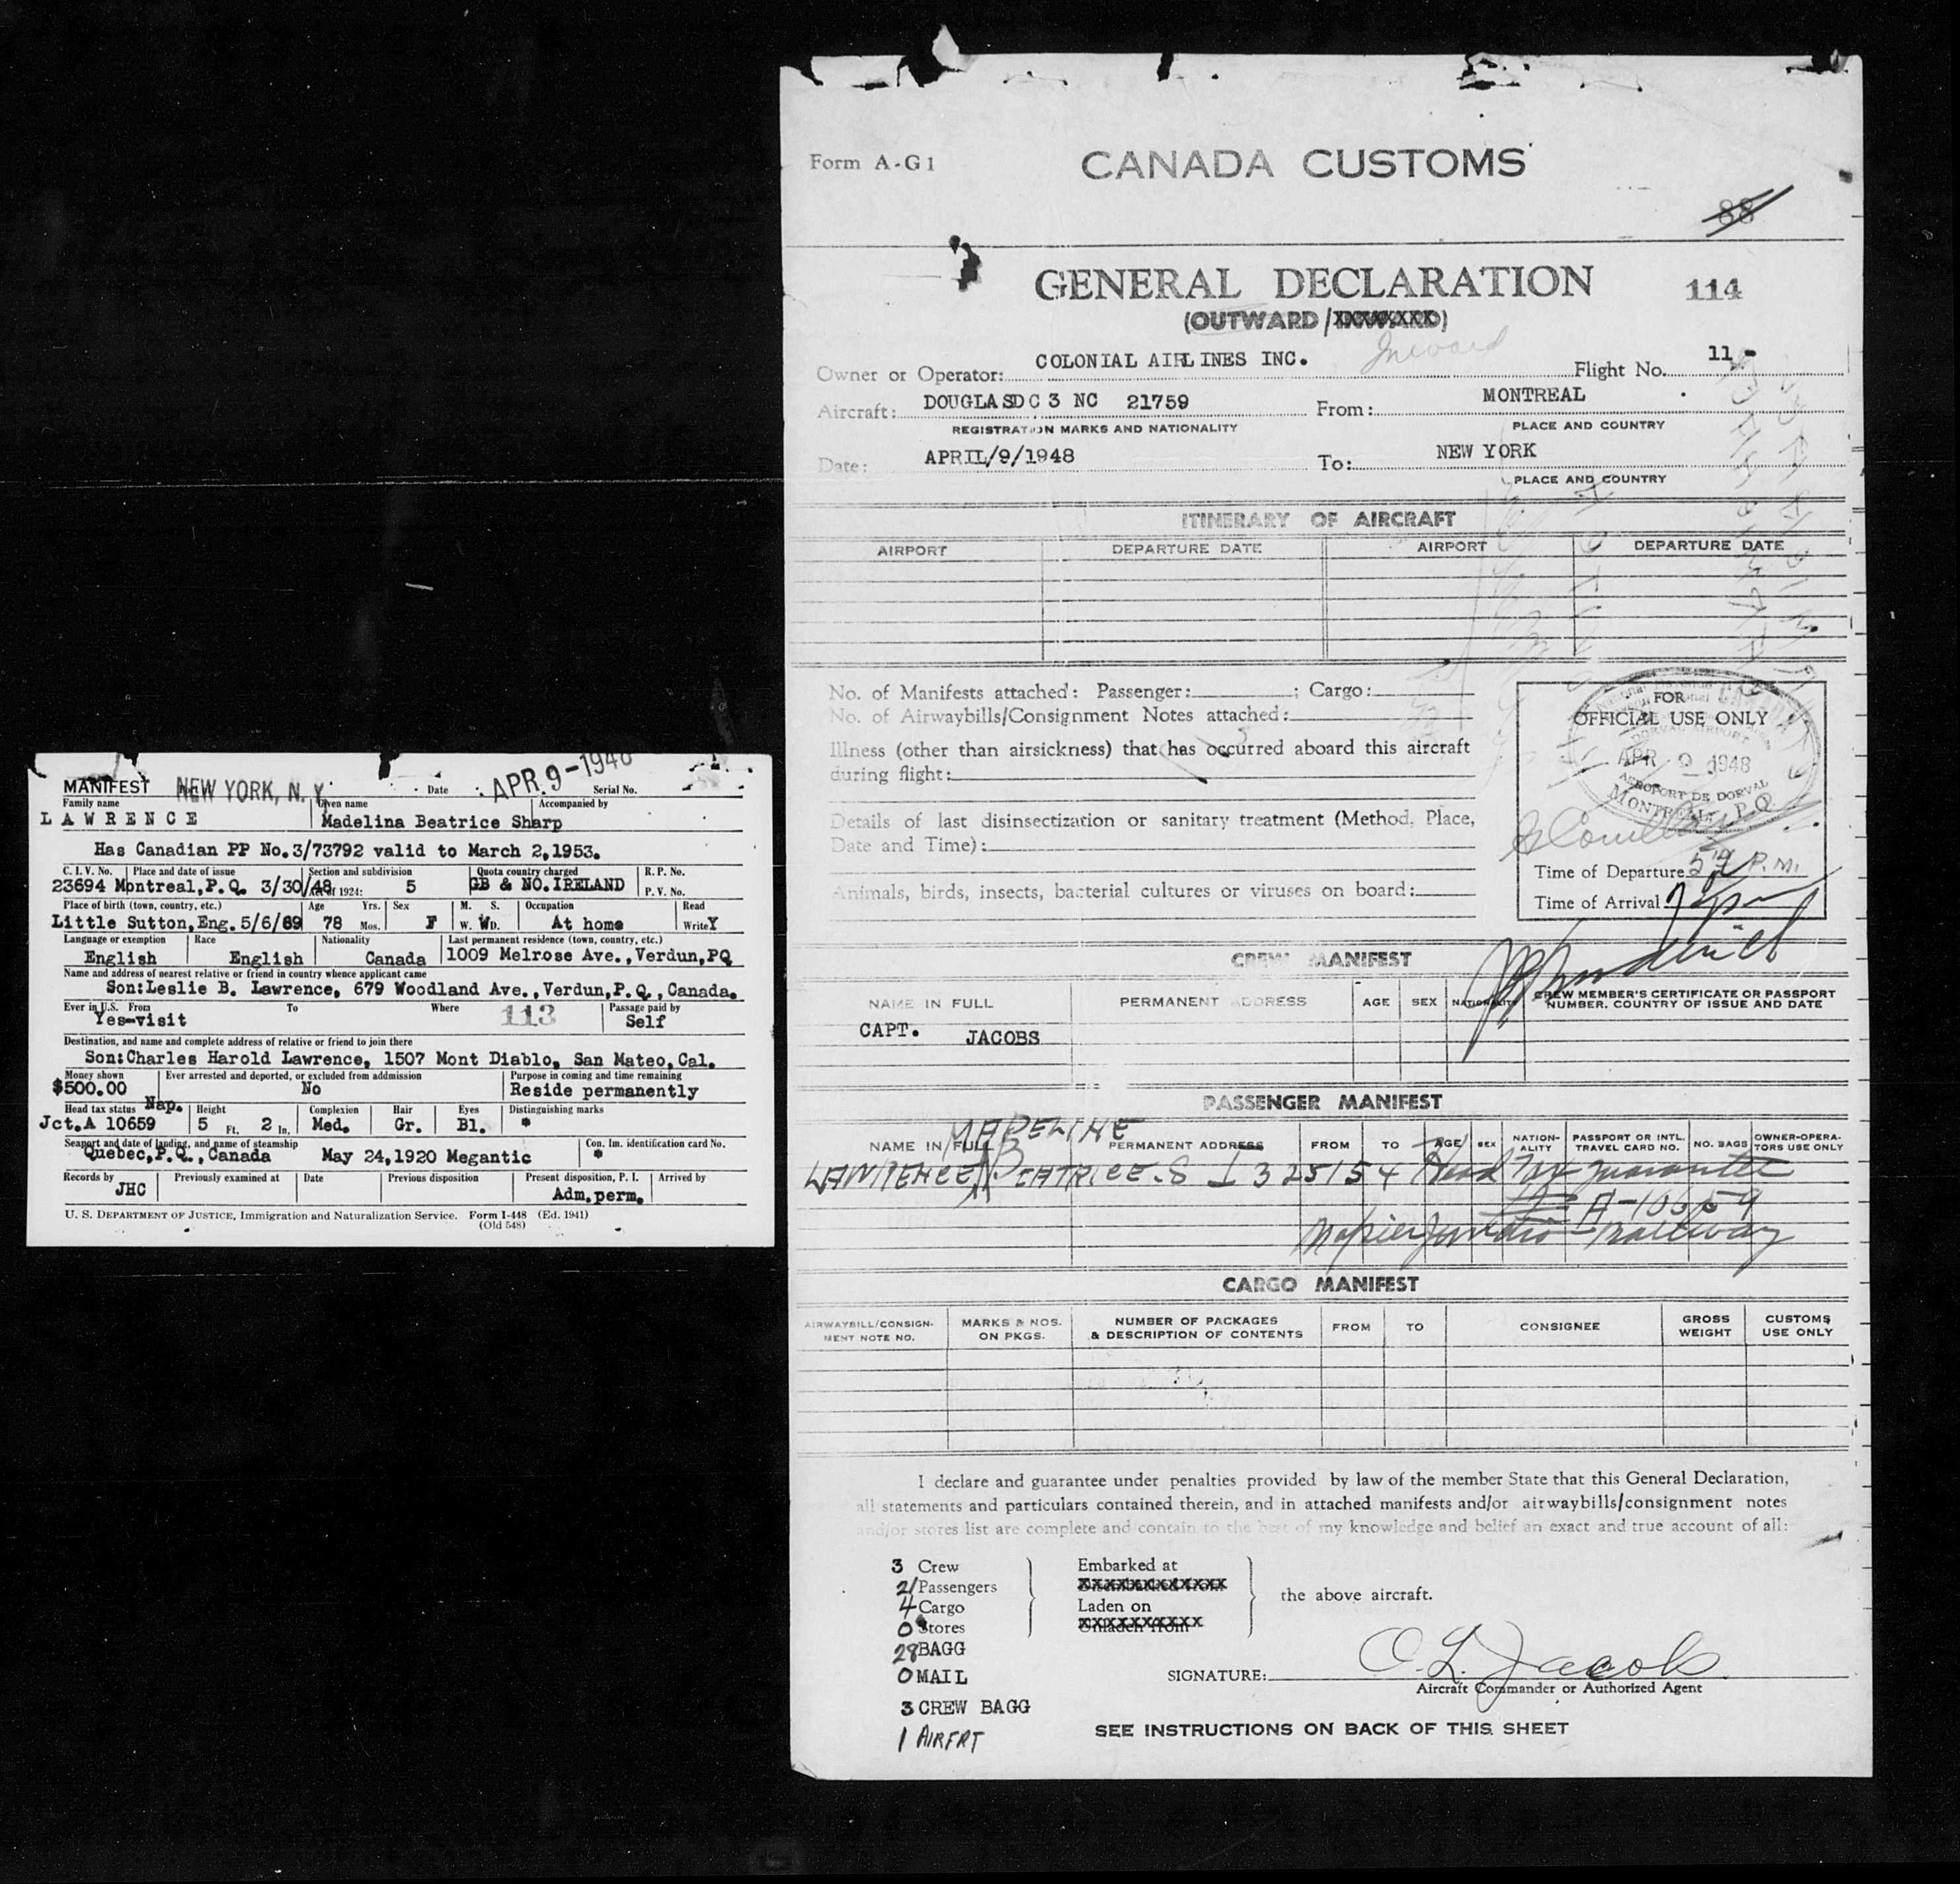 MANIFEST NEW YORK, N.Y. Date APR. 9-1948 Serial No.
Family name Given name Accompanied by
LAWRENCE Madelina Beatrice Sharp
Has Canadian PP No.3/73792 valid to March 2,1953.
C. I. V. No. Place and date of issue Section and subdivision Quota country charged R. P. No.
23694 Montreal,P.Q. 3/30/48 Act of 1924: 5 GB & NO.IRELAND P. V. No.
Place of birth (town, country, etc.) Age Yrs. Sex M. S. Occupation Read
Little Sutton,Eng.5/6/69 78 Mos. F W. WD. At home Write Y
Language or exemption Race Nationality Last permanent residence (town, country, etc.)
English English Canada 1009 Melrose Ave.,Verdun,PQ
Name and address of nearest relative or friend in country whence applicant came
Son:Leslie B. Lawrence, 679 Woodland Ave.,Verdun,P.Q.,Canada.
Ever in U.S. From To Where Passage paid by
Yes-visit 113 Self
Destination, and name and complete address of relative or friend to join there
Son:Charles Harold Lawrence, 1507 Mont Diablo, San Mateo,Cal.
Money shown Ever arrested and deported, or excluded from admission Purpose in coming and time remaining
$500.00 No Reside permanently
Head tax status Nap. Height Complexion Hair Eyes Distinguishing marks
Jct.A 10659 5 Ft. 2 In. Med. Gr. Bl. *
Seaport and date of landing, and name of steamship Con. Im. identification card No.
Quebec,P.Q.,Canada May 24,1920 Megantic *
Records by Previously examined at Date Previous disposition Present disposition, P. I. Arrived by
JHC Adm.perm.
U. S. DEPARTMENT OF JUSTICE, Immigration and Naturalization Service. Form I-448 (Ed. 1941)
(Old 548)
Form A-G1 CANADA CUSTOMS
88
GENERAL DECLARATION 114
(OUTWARD/XXXXXXX)
Inward
Owner or Operator: COLONIAL AIRLINES INC. Flight No. 11 -
Aircraft: DOUGLASDC3 NC 21759 From: MONTREAL
REGISTRATION MARKS AND NATIONALITY PLACE AND COUNTRY
Date: APRIL/9/1948 To: NEW YORK
PLACE AND COUNTRY
ITINERARY OF AIRCRAFT
AIRPORT DEPARTURE DATE AIRPORT DEPARTURE DATE
No. of Manifests attached: Passenger: ; Cargo:
No. of Airwaybills/Consignment Notes attached:
Illness (other than airsickness) that has occurred aboard this aircraft
during flight:
Details of last disinsectization or sanitary treatment (Method, Place,
Date and Time):
Animals, birds, insects, bacterial cultures or viruses on board:
FOR
OFFICIAL USE ONLY
DORVAL AIRPORT
APR 9 1948
AEROPORT DE DORVAL
MONTREAL, P.Q.
Time of Departure 5 19 P.M.
Time of Arrival
CREW MANIFEST
NAME IN FULL PERMANENT ADDRESS AGE SEX NATIONALITY CREW MEMBER'S CERTIFICATE OR PASSPORT
NUMBER. COUNTRY OF ISSUE AND DATE
CAPT. JACOBS
PASSENGER MANIFEST
MADELINE
NAME IN FULL PERMANENT ADDRESS FROM TO AGE SEX NATION-ALITY PASSPORT OR INTL. TRAVEL CARD NO. NO. BAGS OWNER-OPERA-TORS USE ONLY
LAWRENCE, BEATRICE.S I 325154 Head Tax guarantee
A-10659
Napierville Junction Railway
CARGO MANIFEST
AIRWAYBILL/CONSIGN-MENT NOTE NO. MARKS & NOS. ON PKGS. NUMBER OF PACKAGES & DESCRIPTION OF CONTENTS FROM TO CONSIGNEE GROSS WEIGHT CUSTOMS USE ONLY
I declare and guarantee under penalties provided by law of the member State that this General Declaration,
all statements and particulars contained therein, and in attached manifests and/or airwaybills/consignment notes
and/or stores list are complete and contain to the best of my knowledge and belief an exact and true account of all:
3 Crew Embarked at
21 Passengers XXXXXXXXXXXXX
4 Cargo Laden on the above aircraft.
0 Stores XXXXXXXXXXX
28 BAGG
0 MAIL
SIGNATURE: O.L. Jacobs
Aircraft Commander or Authorized Agent
3 CREW BAGG
1 AIRFRT
SEE INSTRUCTIONS ON BACK OF THIS SHEET